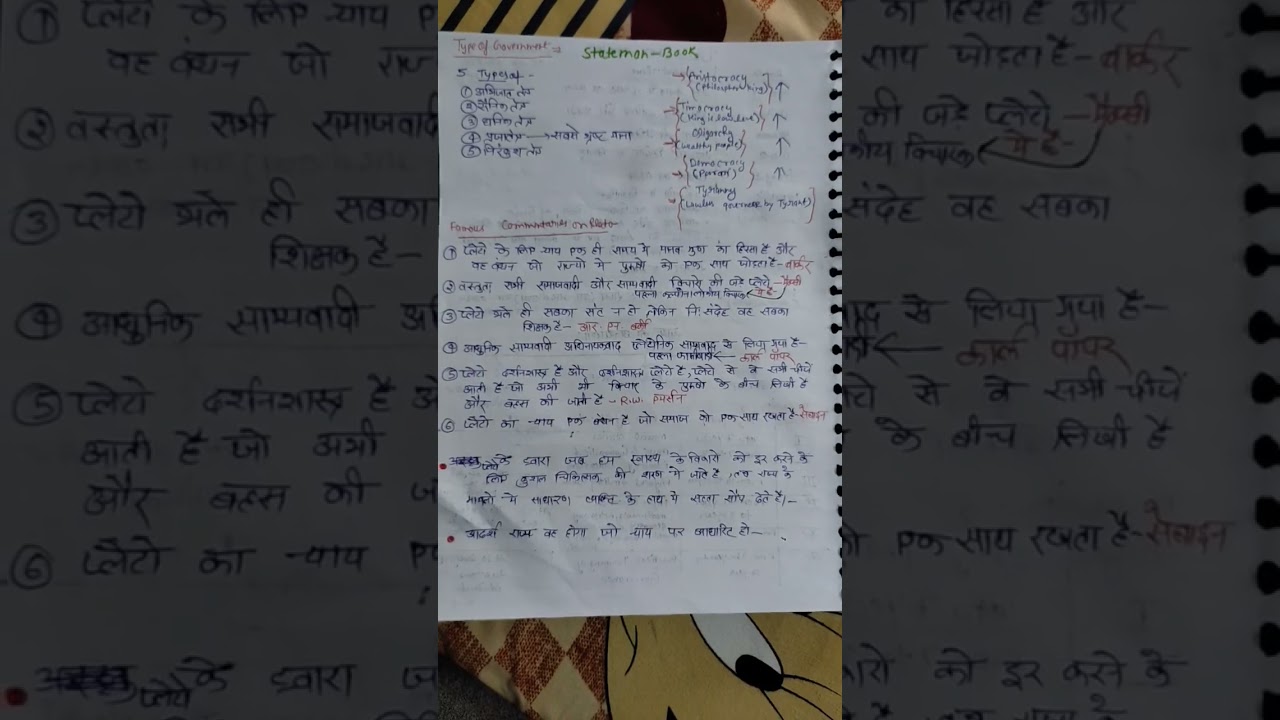 Type of Government =
Statemon-Book
5 Types of -
① अभिजात तंत्र
② सैनिक तंत्र
③ धनिक तंत्र
④ प्रजातंत्र → सबसे भ्रष्ट माना
⑤ निरंकुश तंत्र
→ Aristocracy
(Philosopher King) ↑
→ Timocracy
↑
Oligarchy
→ (wealthy people) ↑
Democracy
→ (Person) ↑
Tyranny
(Lawless governese by Tyrant)
Famous Commentaries on Plato
① प्लेटो के लिए न्याय एक ही समय में मानव गुण का हिस्सा है और
वह बंधन जो राज्यों में पुरुषों को एक साथ जोड़ता है - बार्कर
② वस्तुता सभी समाजवादी और साम्यवादी विचारो की जड़े प्लेटो - मैक्सी
पहला में है -
③ प्लेटो भले ही सबका संत न हो लेकिन निःसंदेह वह सबका
शिक्षक है -
④ आधुनिक साम्यवादी अधिनायकवाद प्लेटोनिक साम्यवाद से लिया गया है -
पहला ← कार्ल पॉपर
⑤ प्लेटो दर्शनशास्त्र है और दर्शनशास्त्र प्लेटो है, प्लेटो से वे सभी चीजें
आती है जो अभी भी विचार के पुरुषों के बीच लिखी है
और बहस की जाती है - R.W. इमर्सन
⑥ प्लेटो का न्याय एक बंधन है जो समाज को एक साथ रखता है - सेबाइन
• प्लेटो के द्वारा जब हम स्वास्थ्य के विकारो को दूर करने के
लिए कुशल चिकित्सक की शरण में जाते है, तब राज्य के
मामलों में साधारण व्यक्ति के हाथ में सत्ता सौंप देते है।-
• आदर्श राज्य वह होगा जो न्याय पर आधारित हो -